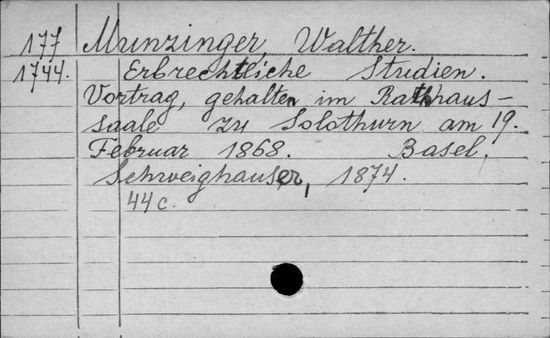 177 Munzinger, Walther.
1744. Erbrechtliche Studien.
Vortrag, gehalten im Rathhaus-
saale zu Solothurn am 19.
Februar 1868. Basel,
Schweighauser, 1874.
44 c.